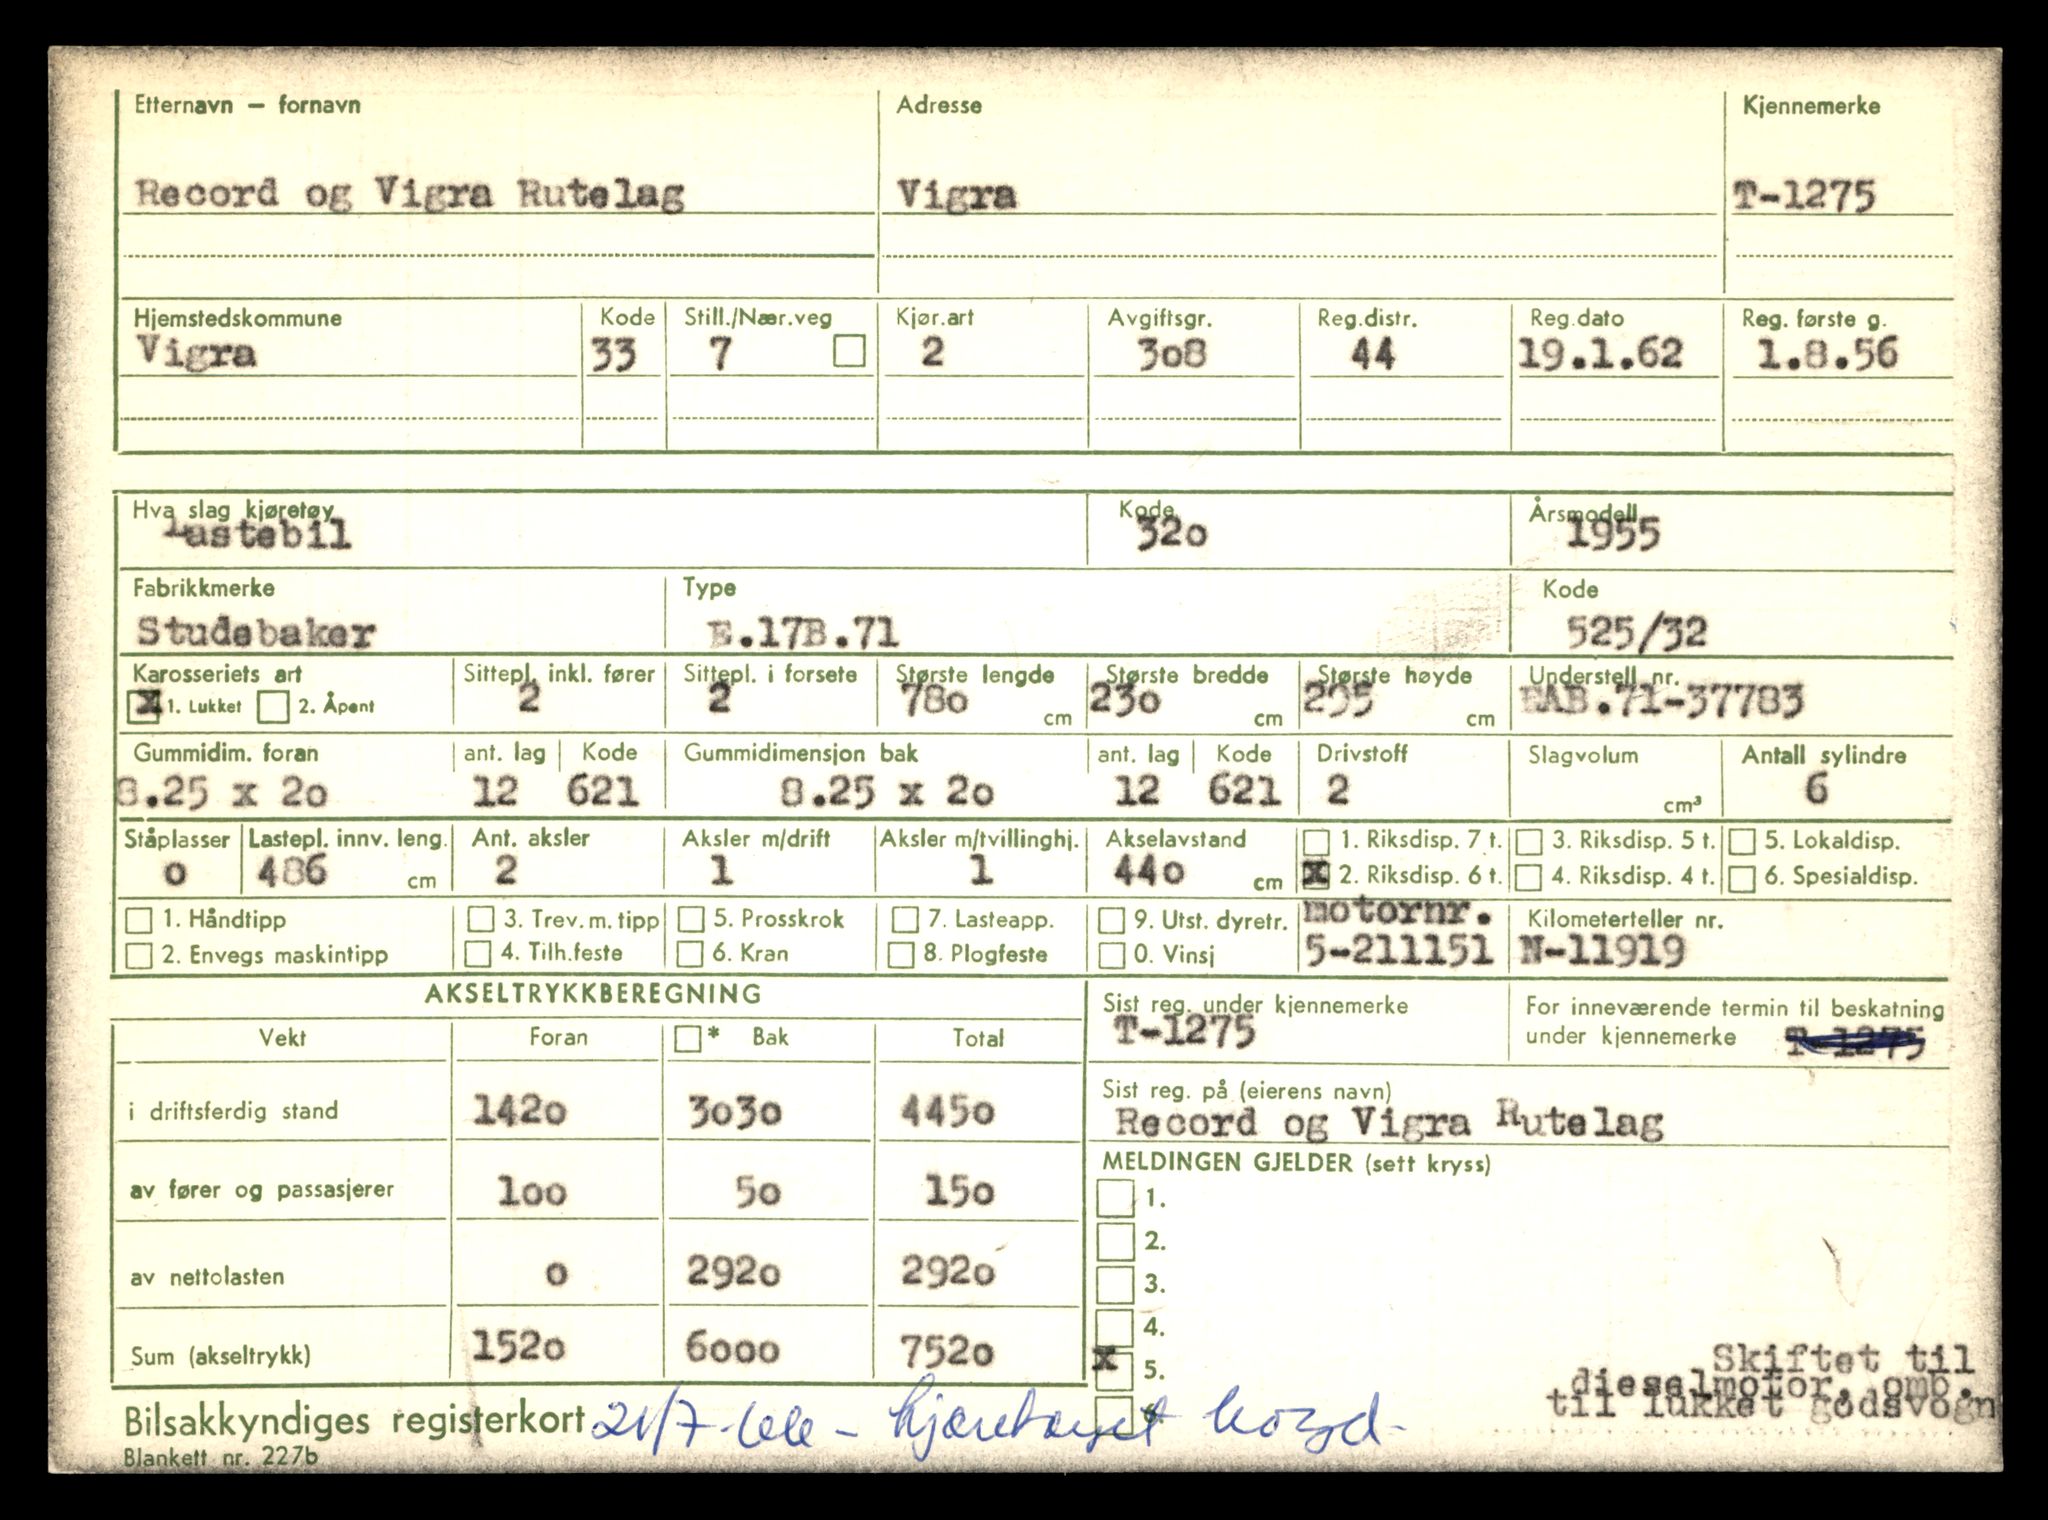 Etternavn — fornavn Adresse Kjennemerke
Record og Vigra Rutelag Vigra T-1275
Hjemstedskommune Kode Still./Nær.veg Kjør.art Avgiftsgr. Reg.distr. Reg.dato Reg. første g.
Vigra 33 7 2 308 44 19.1.62 1.8.56
Hva slag kjøretøy Kode Årsmodell
Lastebil 320 1955
Fabrikkmerke Type Kode
Studebaker E.17B.71 525/32
Karosseriets art Sittepl. inkl. fører Sittepl. i forsete Største lengde Største bredde Største høyde Understell nr.
X 1. Lukket 2. Åpent 2 2 780 cm 230 cm 295 cm EAB.71-37783
Gummidim. foran ant. lag Kode Gummidimensjon bak ant. lag Kode Drivstoff Slagvolum Antall sylindre
8.25 x 20 12 621 8.25 x 20 12 621 2 cm³ 6
Ståplasser Lastepl. innv. leng. Ant. aksler Aksler m/drift Aksler m/tvillinghj. Akselavstand 1. Riksdisp. 7 t. 3. Riksdisp. 5 t. 5. Lokaldisp.
0 486 cm 2 1 1 440 cm X 2. Riksdisp. 6 t. 4. Riksdisp. 4 t. 6. Spesialdisp.
1. Håndtipp 3. Trev. m. tipp 5. Prosskrok 7. Lasteapp. 9. Utst. dyretr. motornr. Kilometerteller nr.
2. Envegs maskintipp 4. Tilh.feste 6. Kran 8. Plogfeste 0. Vinsj 5-211151 N-11919
AKSELTRYKKBEREGNING Sist reg. under kjennemerke For inneværende termin til beskatning
Vekt Foran * Bak Total T-1275 under kjennemerke T-1275
i driftsferdig stand 1420 3030 4450 Sist reg. på (eierens navn)
Record og Vigra Rutelag
av fører og passasjerer 100 50 150 MELDINGEN GJELDER (sett kryss)
1.
2.
av nettolasten 0 2920 2920 3.
4.
Sum (akseltrykk) 1520 6000 7520 X 5. Skiftet til
dieselmotor, omb.
til lukket godsvogn
Bilsakkyndiges registerkort 21/7-66 – kjøretøyet 6.
Blankett nr. 227b